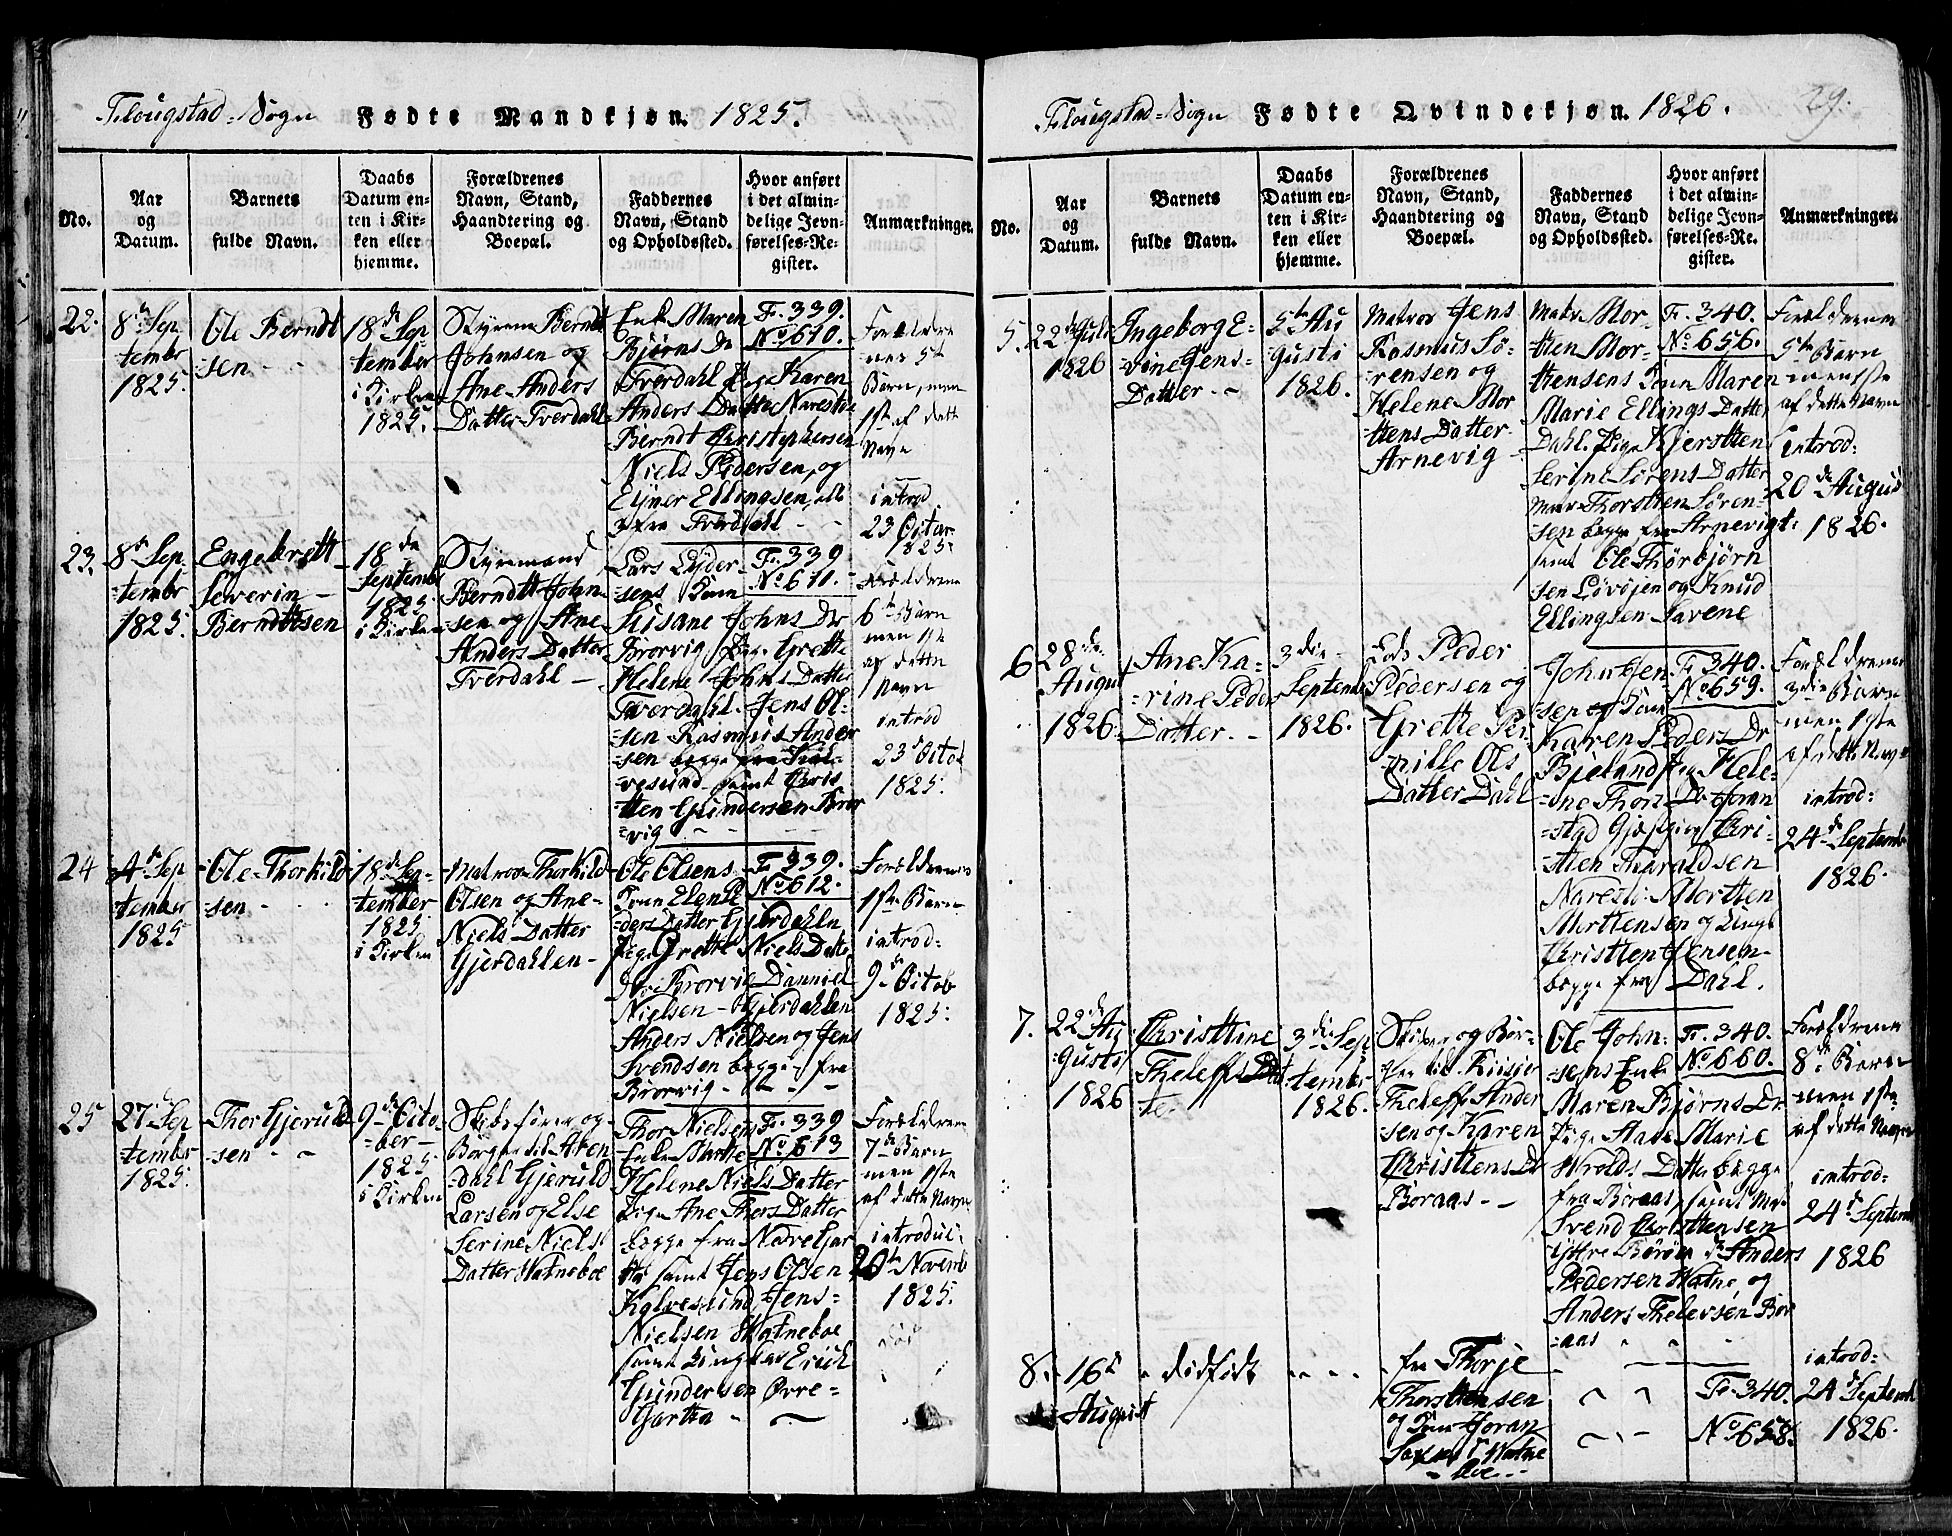 Flougstad-Sogn Fødte Mandkjøn. 1825.
No.
Aar
og
Datum.
Barnets
fulde Navn.
Daabs
Datum en-
ten i Kir-
ken eller
hjemme.
Forældrenes
Navn, Stand,
Haandtering og
Boepæl.
Faddernes
Navn, Stand
og Opholdssted.
Hvor anført
i det almin-
delige Jevn-
førelses-Re-
gister.
Anmærkninger.
22.
8de Sep
tembr
1825.
Ole Berndt
sen
18de Sep
tember
i Kirken
1825.
Styrm Berndt
Johnsen og
Ane Anders
Datter Tverdahl
Enke Maren
Bjørns Dr
Tverdahl Pige Karen
Anders Datter Narestie
Berndt Christophersen
Niels Pedersen, og
Ejner Ellingsen, alle
fra Tverdahl
Fr. 339.
No 610.
Forældrene
nes 5te
Barn, men
1ste af dette
Navn
introd
23 Octor
1825.
23.
8de Sep-
tembr
1825.
Engebrett
Severin
Berndttsen
18de
Septembr
1825
i Kirken
Styremand
Berndtt John
sen og Ane
Anders Datter
Tverdahl
Lars Lyder-
sens Kone
Susane Johns Dr
Brorvig Pige Grette
Helene Johns Datter
Tverdahl. Jens Ol-
sen Rasmus Ander
sen begge fra Kal-
vesund samt Chris
tten Gundersen Bror
vig
Fr. 339
No 611.
Forældrene
6te Barn
men 1ste
af dette
Navn
introd
23de Octob
1825.
24
4de Sep
tember
1825
Ole Thorkild
sen
18de Sep-
tember
1825
i Kirken
Matros Thorkild
Olsen og Ane
Niels Datter
Gjerdahlen
Ole Olsens
Kone Elen Pe
ders Datter Gjerdahln
Pige Grette Niels Datte
Brorvig Danniel
Nielsen Gjerdahlen
Anders Nielsen og Jens
Svendsen begge fra
Brorvig
Fr. 339.
No 612.
Forældrenes
1ste Barn
introd:
9de Octob
1825:
25
27de Sep
tembr
1825.
Thor Gjeruld
sen
9de Octo-
ber
1825
i Kirken
Skibsfører og
Borger til Aren
dahl Gjeruld
Larsen og Else
Serine Niels
Datter Watneboe
Thor Nielsens
Enke Marthe
Helene Niels Datter
Pige Ane Thors Datter
begge fra Nedre Gar
tha samt Jens Olsen
Kalvesund Jens
Nielsen Watneboe
samt Ungkar Erich
Gundersen Øvre-
Gartha
Fr. 339
No 613
Forældrene
7de Barn
men 1ste
af dette Navn
introdul-
20de Novemb
1825.
Flougstad-Sogn Fødte Qvindekjøn. 1826.
29.
No.
Aar
og
Datum.
Barnets
fulde Navn.
Daabs
Datum en-
ten i Kir-
ken eller
hjemme.
Forældrenes
Navn, Stand,
Haandtering og
Boepæl.
Faddernes
Navn, Stand
og Opholdssted.
Hvor anført
i det almin-
delige Jevn-
førelses-Re-
gister.
Anmærkninger.
5.
22de Juli
1826
Ingeborg E-
vine Jens-
Datter
5te Au
gusti
1826.
Matros Jens
Rasmus Sø-
rensen og
Helene Mor
ttens Datter
Arnevig
Matr. Mor-
tten Mor-
ttensens Kone Maren
Marie Ellings Datter
Dahl. Pige Kjerstten
Serine Sørens Datter
Matr Thorstten Søren-
sen begge fra Arnevigt.
samt Ole Thorbjørn
sen Løvøjen og Knud
Ellingsen Savene
Fr. 340.
No 656.
Forældrenes
5te Barn
men 1ste
af dette Navn
introd:
20de August
1826.
6
28de
August
1826
Ane Ka-
rine Peders
Datter
3die
Septembr
1826.
Lods Peder
Pedersen og
Grette Per
nille Ols
Datter Dahl
John Jen
sen og Kone
Karen Peders Dr
Bjeland Pige Hele-
ne Thors Dr Homn
stad Gjæstgiver Chri-
stten Tharaldsen
Naresti Mortten
Morttensen og Ungk
Christten Jensen
begge fra Dahl.
Fr 340.
No 659.
Forældrenes
3die Barn
men 1ste
af dette Navn
introd:
24de Septembr
1826.
7.
22de Au
gusti
1826
Christtine
Theleffs Dat
ter
3die Sep
tembr
1826.
Skipper og Bor-
ger til Riisøer
Theleff Ander
sen og Karen
Christtens Dr
Boraas
Ole John-
sens Enke
Maren Bjørns Dr
Pige Aase Marie
Wrolds Datter begge
fra Boraas, samt Mat
Svend Christtensen
Anders
Pedersen Watne og
Anders Thelevsen Bor
aas
Fr. 340.
No 660.
Forældrene
8de Barn
men 1ste
af dette Navn
introd:
24de Septemb
1826
8.
16de
August
dødfødt
fra Thorje
Thorsttensen
og Kone Joran
Watne
Fr. 340.
No 658.
introd:
24de Septemb
1826.